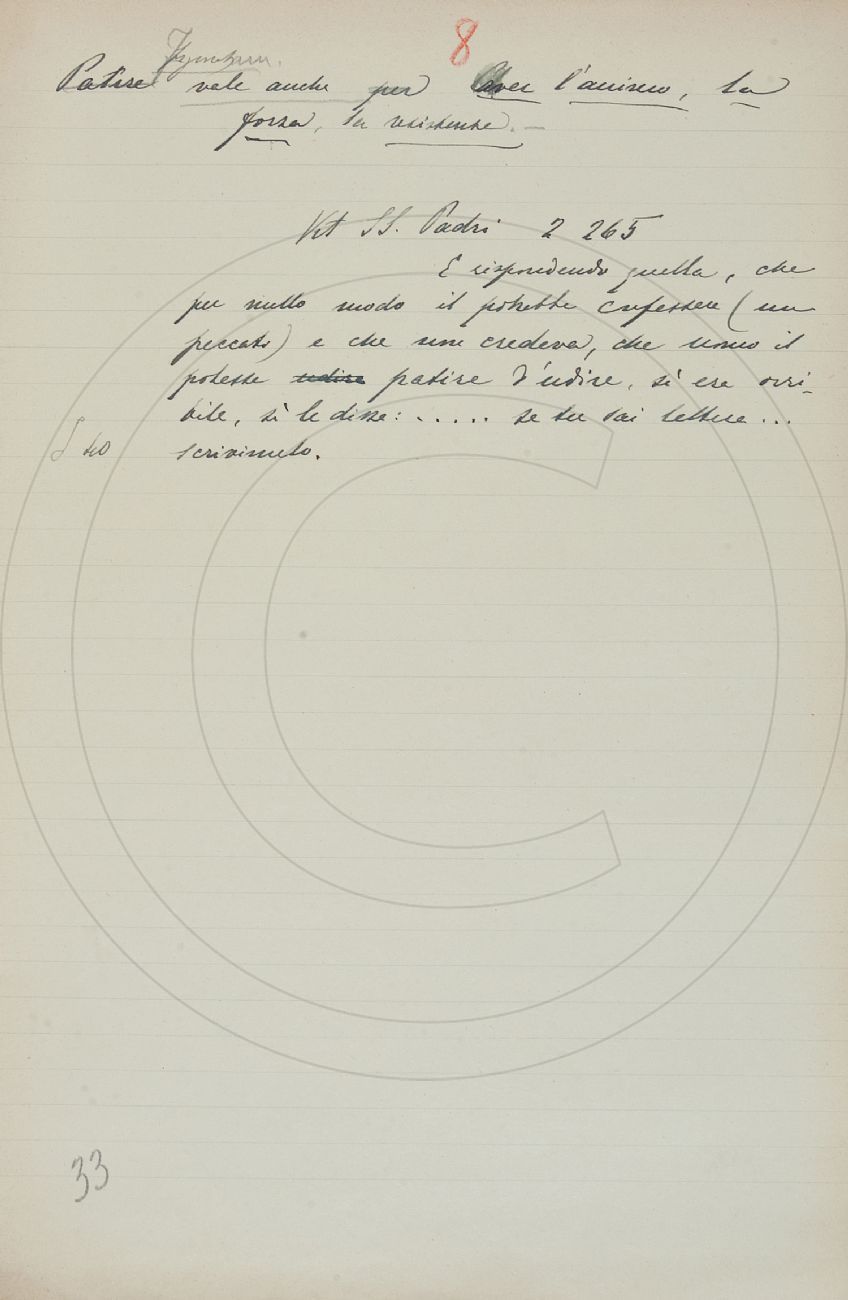 8
Patire vale anche per Aver l'animo, la
forza, la resistenza. —
Vit SS. Padri 2 265
E rispondendo quella, che
per nullo modo il potrebbe confessare (un
peccato) e che non credeva, che uomo il
potesse udire patire d'udire, sì era orri-
bile, sì le disse: ..... se tu sai lettere ...
scrivimelo.
33